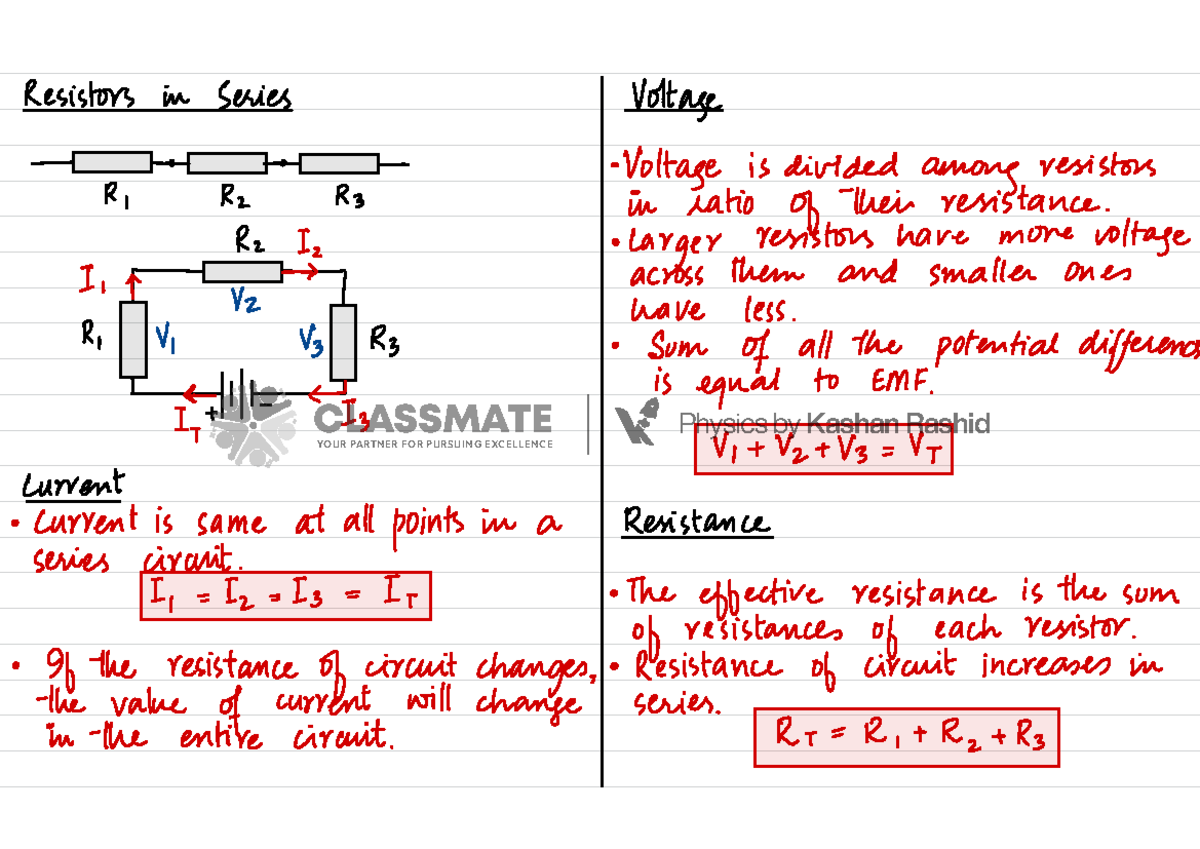 Resistors in Series
R1 R2 R3
R2 I2
I1
V2
R1 V1 V3 R3
IT + - I3
CLASSMATE
YOUR PARTNER FOR PURSUING EXCELLENCE
Current
• Current is same at all points in a
series circuit.
I1 = I2 = I3 = IT
• If the resistance of circuit changes,
the value of current will change
in the entire circuit.
Voltage
• Voltage is divided among resistors
in ratio of their resistance.
• Larger resistors have more voltage
across them and smaller ones
have less.
• Sum of all the potential differenc
is equal to EMF.
Physics by Kashan Rashid
V1 + V2 + V3 = VT
Resistance
• The effective resistance is the sum
of resistances of each resistor.
• Resistance of circuit increases in
series.
RT = R1 + R2 + R3